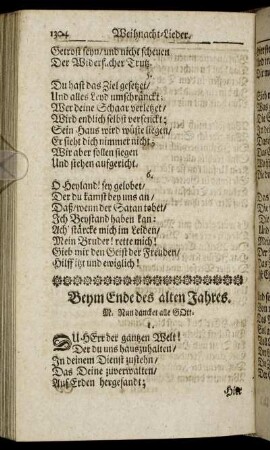 1304 Weihnacht-Lieder.
Getrost seyn/ und nicht scheuen
Der Widersacher Trutz.
5.
Du hast das Ziel gesetzet/
Und alles Leyd umschränckt:
Wer deine Schaar verletzet/
Wird endlich selbst versenckt;
Sein Haus wird wüste liegen/
Er sieht dich nimmer nicht;
Wir aber sollen siegen
Und stehen aufgericht.
6.
O Heyland! sey gelobet/
Der du kamst bey uns an/
Daß/ wenn der Satan tobet/
Ich Beystand haben kan:
Ach! stärcke mich im Leiden/
Mein Bruder! rette mich!
Gieb mir den Geist der Freuden/
Hilff itzt und ewiglich!
Beym Ende des alten Jahres.
M. Nun dancket alle GOtt.
1.
DU HErr der gantzen Welt!
Der du uns hauszuhalten/
In deinem Dienst zustehn/
Das Deine zuverwalten/
Auf Erden hergesandt;